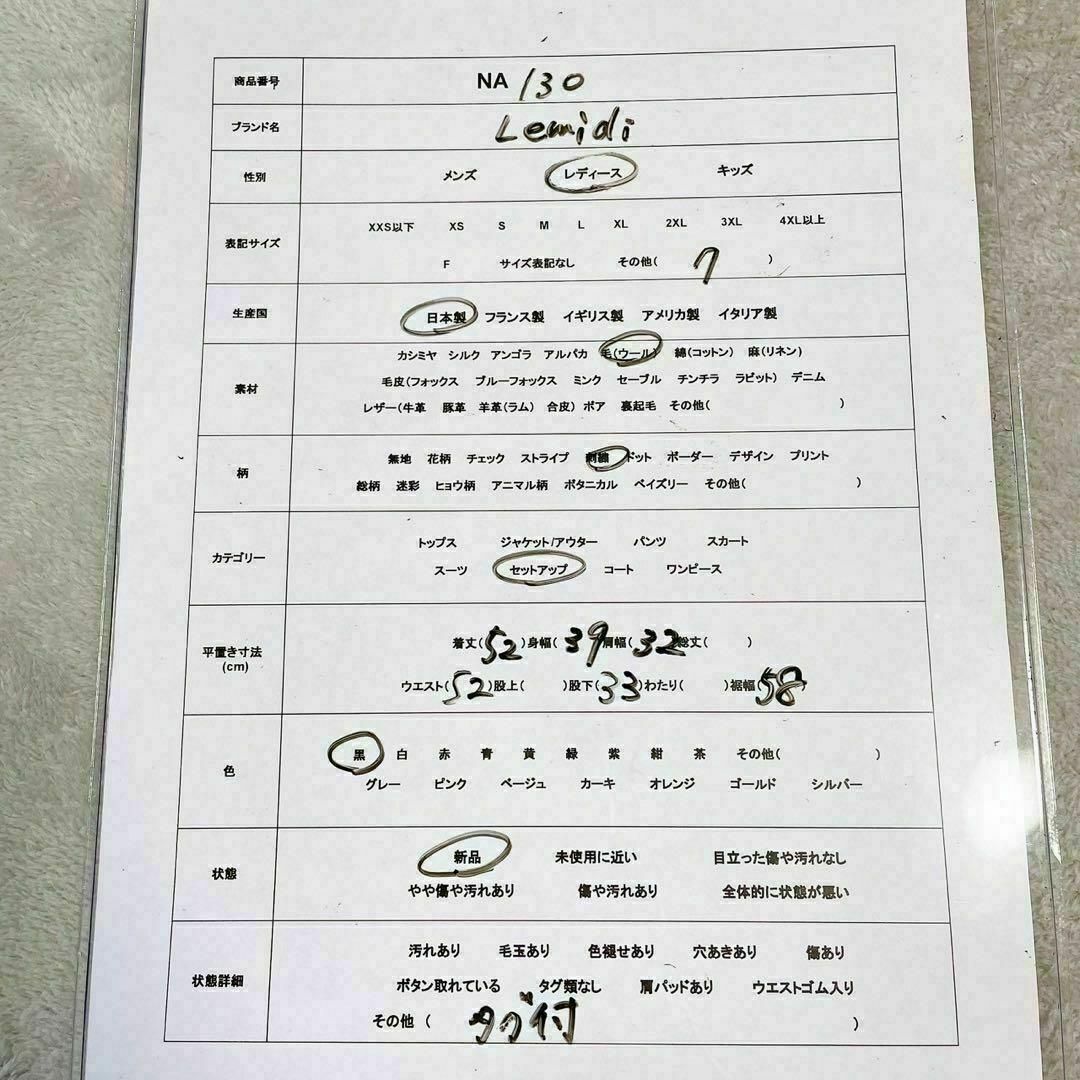 商品番号 NA 130
ブランド名 Lemidi
性別 メンズ レディース キッズ
表記サイズ XXS以下 XS S M L XL 2XL 3XL 4XL以上
F サイズ表記なし その他( 7 )
生産国 日本製 フランス製 イギリス製 アメリカ製 イタリア製
素材 カシミヤ シルク アンゴラ アルパカ 毛(ウール) 綿(コットン) 麻(リネン)
毛皮(フォックス ブルーフォックス ミンク セーブル チンチラ ラビット) デニム
レザー(牛革 豚革 羊革(ラム) 合皮) ボア 裏起毛 その他( )
柄 無地 花柄 チェック ストライプ 刺繍 ドット ボーダー デザイン プリント
総柄 迷彩 ヒョウ柄 アニマル柄 ボタニカル ペイズリー その他( )
カテゴリー トップス ジャケット/アウター パンツ スカート
スーツ セットアップ コート ワンピース
平置き寸法 (cm) 着丈( 52 )身幅( 39 肩幅( 32 総丈( )
ウエスト( 52 )股上( )股下( 33 )わたり( )裾幅( 58 )
色 黒 白 赤 青 黄 緑 紫 紺 茶 その他( )
グレー ピンク ベージュ カーキ オレンジ ゴールド シルバー
状態 新品 未使用に近い 目立った傷や汚れなし
やや傷や汚れあり 傷や汚れあり 全体的に状態が悪い
状態詳細 汚れあり 毛玉あり 色褪せあり 穴あきあり 傷あり
ボタン取れている タグ類なし 肩パッドあり ウエストゴム入り
その他 ( タグ付 )